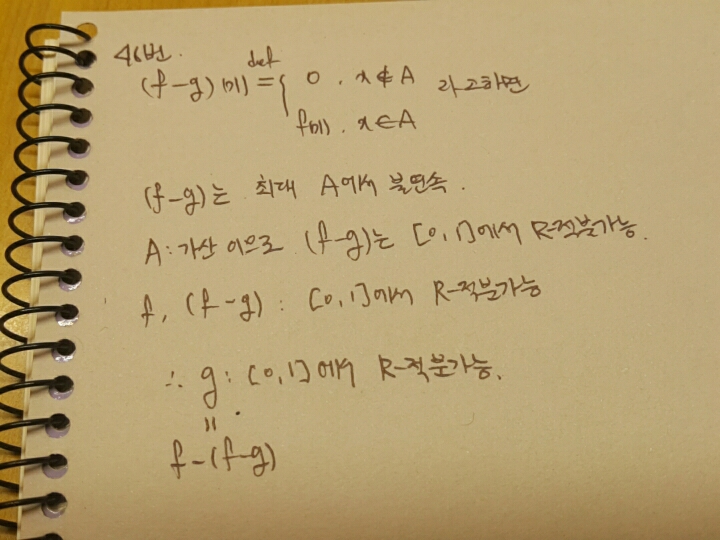 46번.
(f-g)(x) def= { 0, x∉A 라고하면
f(x), x∈A
(f-g)는 최대 A에서 불연속.
A: 가산 이므로 (f-g)는 [0,1]에서 R-적분가능.
f, (f-g) : [0,1]에서 R-적분가능
∴ g : [0,1]에서 R-적분가능.
=
f-(f-g)